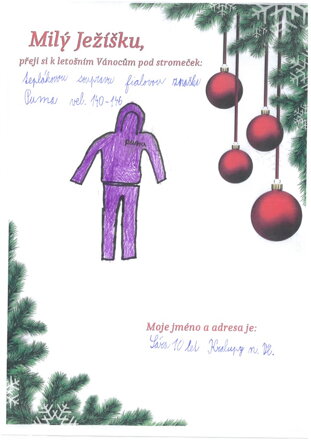 Milý Ježíšku,
přeji si k letošním Vánocům pod stromeček:
teplákovou soupravu fialovou značka
Puma vel. 140-146
PUMA
Moje jméno a adresa je:
Sára 10 let Kralupy n. Vl.